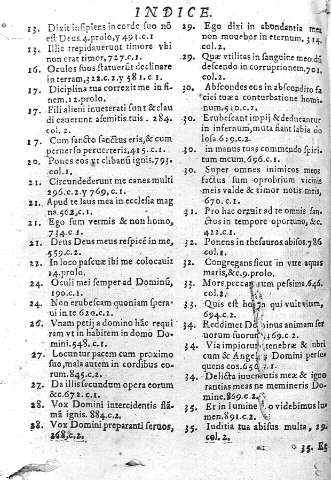 INDICE.
13. Dixit insipiens in corde suo nō
est Deus. 4. prolo, y 491. c. 1
13. Illic trepidaverunt timore vbi
non erat timor, 727. c. 1.
16. Oculos suos statuerūt declinare
in terram, 322. c. 2. y 581. c. 1.
17. Diciplina tua correxit me in fi-
nem. 12. prolo.
17. Filii alieni inueterati sunt & clau
di cauerunt a semitis tuis. 284.
col. 2.
17. Cum sancto sanctus eris, & cum
peruerso peruerteris, 415. c. 1.
20. Pones eos vt clibanū ignis, 793.
col. 1.
21. Circundederunt me canes multi
296. c. 2. y 769. c. 1.
21. Apud te laus mea in ecclesia mag
na. 562, c. 1.
21. Ego sum vermis & non homo,
734. c. 1.
21. Deus Deus meus respice in me,
559. c. 2.
22. In loco pascuæ ibi me colocauit
14. prolo.
24. Oculi mei semper ad Dominū,
190. c. 1.
24. Non erubescam quoniam spera-
ui in te 620. c. 1.
26. Vnam petij a domino hāc requi
ram vt in habitem in domo Do-
mini. 548. c. 1.
27. Locuntur pacem cum proximo
suo, mala autem in cordibus eo-
rum. 845. c. 2.
27. Da illis secundum opera eorum
&c. 672. c. 1.
28. Vox Domini intercidentis flā-
mā ignis. 884. c. 2.
28. Vox Domini preparanti seruos,
268, c. 2.
29. Ego dixi in abundantia mea
non mouebor in eternum, 314.
col. 2.
29. Quæ vtilitas in sanguine meo dū
descendo in corruptionem, 701.
col. 2.
30. Abscondes eos in abscondito fa
ciei tuæ a conturbatione homi-
num. 510. c. 1.
30. Erubescant impij & deducantur
in infernum, muta fiant labia do
losa. 619. c. 2.
30. in manus tuas commendo spiri-
tum meum, 696. c. 1.
30. Super omnes inimicos meos
factus sum oprobrium vicinis
meis valde & timor notis meis,
670. c. 1.
31. Pro hac orauit ad te omnis san-
ctus in tempore oportuno, &c.
422. c. 1.
32. Ponens in thesauros abisos, 786
col. 1.
32. Congregans sicut in vtre aquas
maris, & c. 9. prolo.
33. Mors peccatorum pesima. 646.
col. 2.
33. Quis est homo qui vult vitam,
694. c. 2.
34. Reddimet Dominus animam ser
uorum suorum, 169. c. 2.
34. Via impiorum tenebræ & lubri
cum & Angelus Domini perse-
quens eos. 656. c. 1.
34. Delicta iuuentutis meæ & igno
rantias meas ne memineris Domi-
ne. 869. c. 2.
35. Et in lumine tuo videbimus lu-
men. 891. c. 2.
35. Iuditia tua abisus multa, 29.
col. 2.
35. Eg